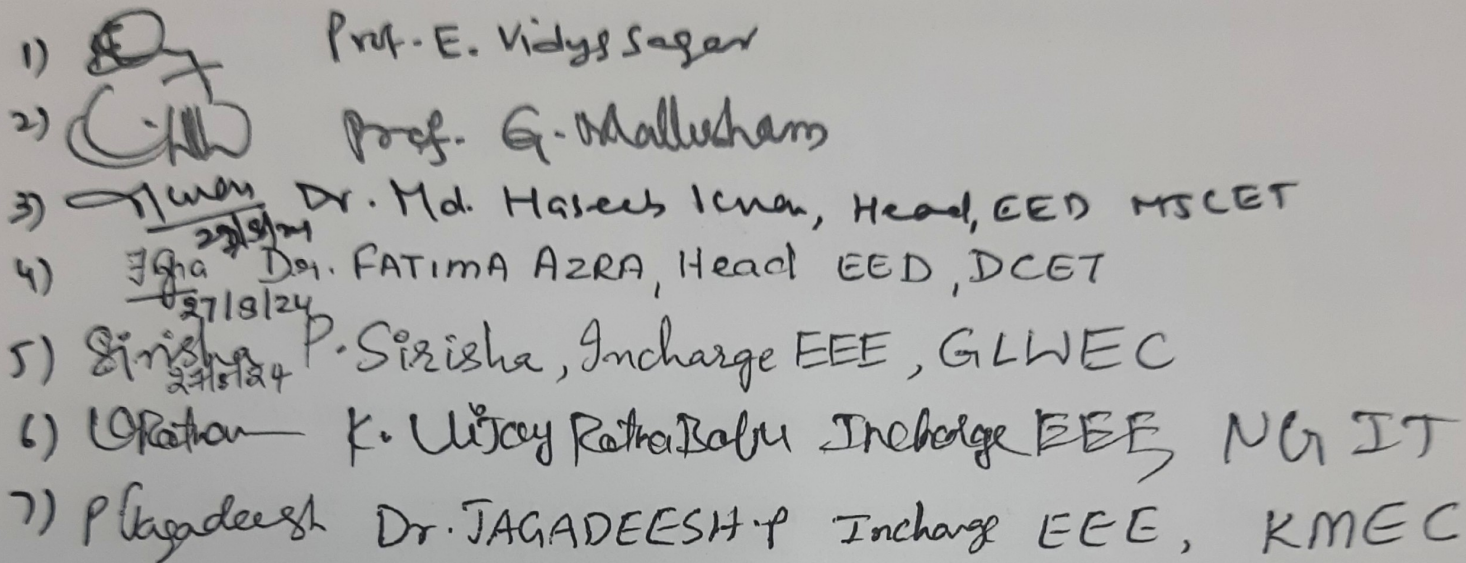 1) Prof. E. Vidya Sagar
2) Prof. G. Mallesham
3) Dr. Md. Haseeb Khan, Head, EED MJCET
27/8/24
4) Dr. FATIMA AZRA, Head EED, DCET
27/8/24
5) Sirisha P. Sirisha, Incharge EEE, GLWEC
27/8/24
6) K. Vijay Ratna Babu Incharge EEE, NGIT
7) P Jagadeesh Dr. JAGADEESH. P Incharge EEE, KMEC